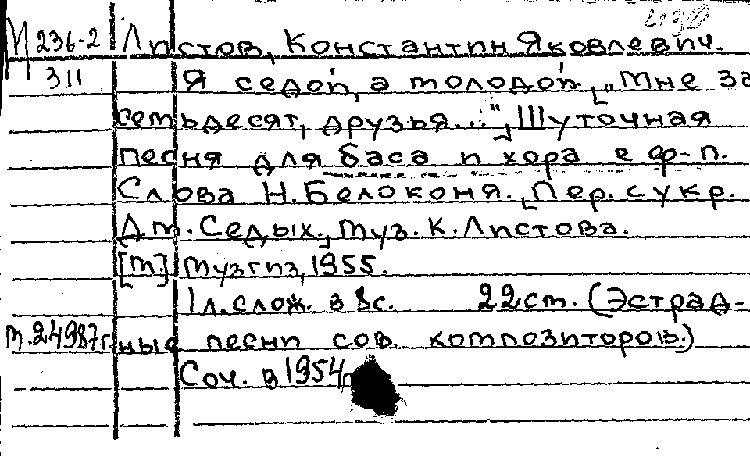 М 236-2 Листов, Константин Яковлевич.
311 Я седой, а молодой, „Мне за
семьдесят, друзья...", Шуточная
песня для баса и хора с ф-п.
Слова Н. Белоконя. Пер. с укр.
Дм. Седых., муз. К. Листова.
[М.] Музгиз, 1955.
1 л. слож. в 8с. 22 ст. (Эстрад-
т. 24987г. ные песни сов. композиторов.)
Соч. в 1954